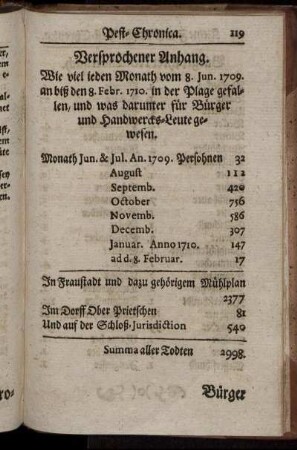 Pest-Chronica. 119
Versprochener Anhang.
Wie viel ieden Monath vom 8. Jun. 1709.
an biß den 8. Febr. 1710. in der Plage gefal-
len, und was darunter für Bürger
und Handwercks-Leute ge-
wesen.
Monath Jun. & Jul. An. 1709. Persohnen 32
August 112
Septemb. 420
October 756
Novemb. 586
Decemb. 307
Januar. Anno 1710. 147
ad d. 8. Februar. 17
In Fraustadt und dazu gehörigem Mühlplan
2377
Im Dorff Ober Prietschen 81
Und auf der Schloß-Jurisdiction 540
Summa aller Todten 2998.
Bürger